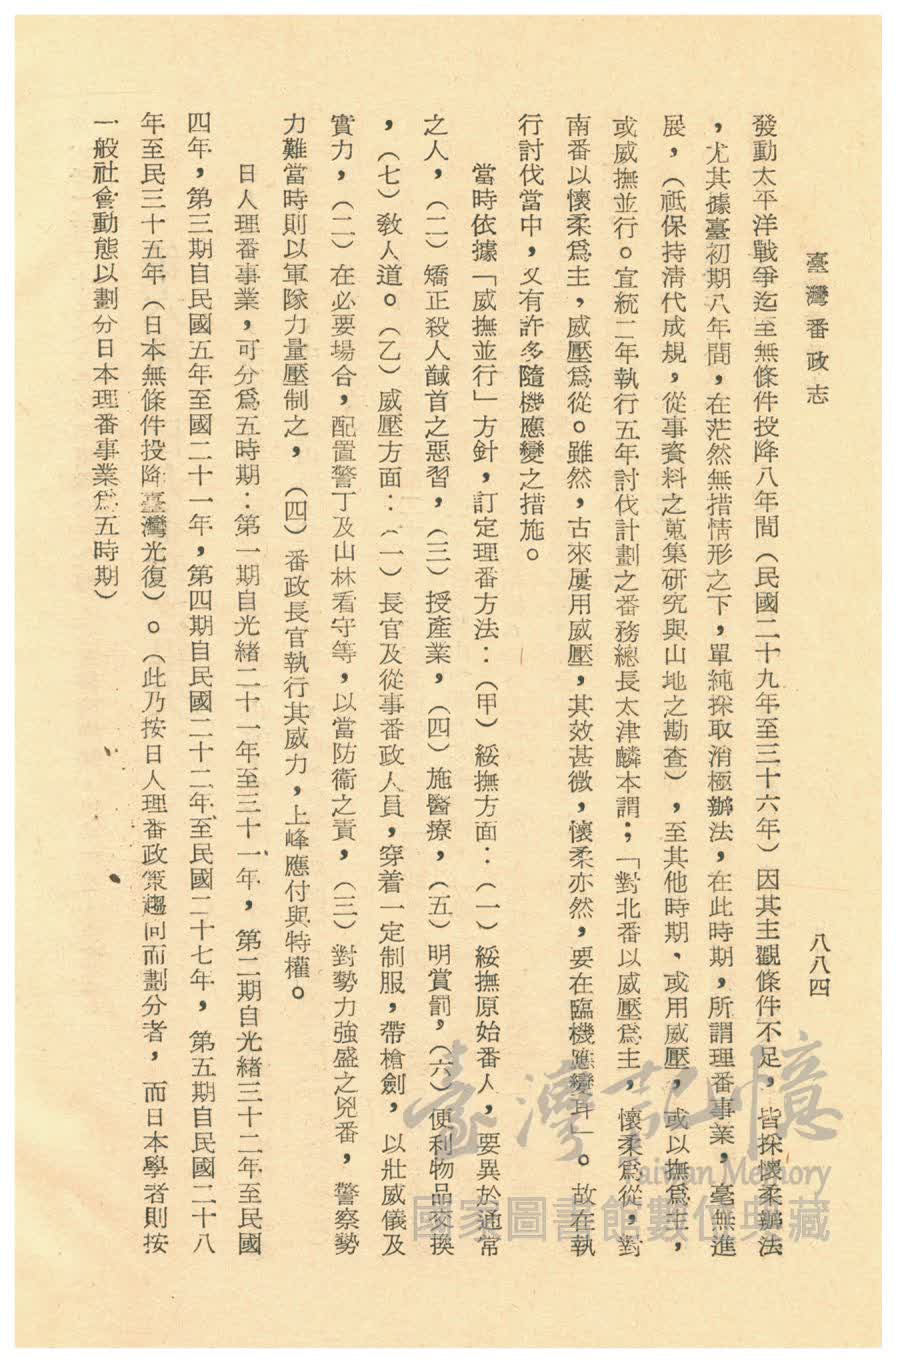 臺灣番政志
八八四
發動太平洋戰爭迄至無條件投降八年間（民國二十九年至三十六年）因其主觀條件不足，皆採懷柔辦法
，尤其據臺初期八年間，在茫然無措情形之下，單純採取消極辦法，在此時期，所謂理番事業，毫無進
展，（祗保持淸代成規，從事資料之蒐集研究與山地之勘查），至其他時期、或用威壓，或以撫爲主，
或威撫並行。宣統二年執行五年討伐計劃之番務總長大津麟本謂；「對北番以威壓爲主，懷柔爲從，對
南番以懷柔爲主，威壓爲從。雖然，古來屢用威壓，其效甚微，懷柔亦然，要在臨機應變耳」。故在執
行討伐當中，又有許多隨機應變之措施。
當時依據「威撫並行」方針，訂定理番方法：（甲）綏撫方面：（一）綏撫原始番人，要異於通常
之人，（二）矯正殺人馘首之惡習，（三）授產業，（四）施醫療，（五）明賞罰，（六）便利物品交換
，（七）敎人道。（乙）威壓方面：（一）長官及從事番政人員，穿着一定制服，帶槍劍，以壯威儀及
實力，（二）在必要場合，配置警丁及山林看守等，以當防衞之責，（三）對勢力強盛之兇番，警察勢
力難當時則以軍隊力量壓制之，（四）番政長官執行其威力，上峰應付與特權。
日人理番事業，可分爲五時期：第一期自光緒二十一年至三十一年，第二期自光緒三十二年至民國
四年，第三期自民國五年至國二十一年，第四期自民國二十二年至民國二十七年，第五期自民國二十八
年至民三十五年（日本無條件投降臺灣光復）。（此乃按日人理番政策趨向而劃分者，而日本學者則按
一般社會動態以劃分日本理番事業爲五時期）
臺灣記憶
Taiwan Memory
國家圖書館數位典藏